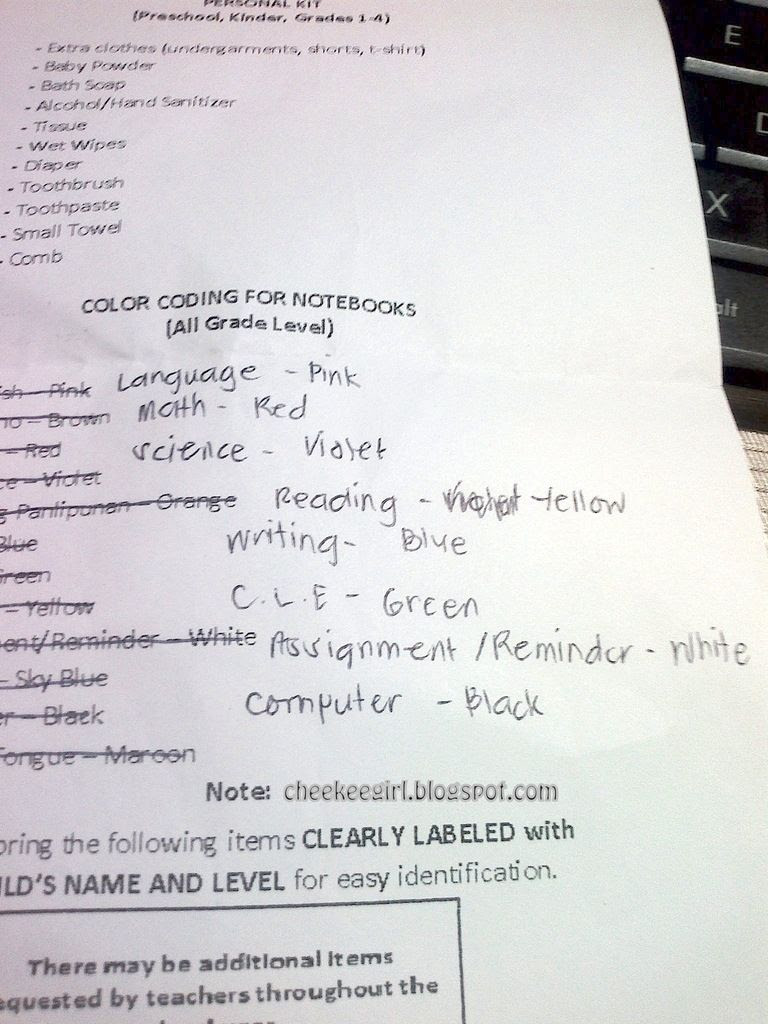 PERSONAL KIT
(Preschool, Kinder, Grades 1-4)
- Extra clothes (undergarments, shorts, t-shirt)
- Baby Powder
- Bath Soap
- Alcohol/Hand Sanitizer
- Tissue
- Wet Wipes
- Diaper
- Toothbrush
- Toothpaste
- Small Towel
- Comb
COLOR CODING FOR NOTEBOOKS
(All Grade Level)
sh – Pink Language - Pink
no – Brown Math - Red
– Red Science - Violet
ce – Violet
g Panlipunan – Orange Reading - Yellow
Blue Writing - Blue
Green
– Yellow C.L.E - Green
ent/Reminder – White Assignment /Reminder - White
– Sky Blue
er – Black Computer - Black
Tongue – Maroon
Note: cheekeegirl.blogspot.com
bring the following items CLEARLY LABELED with
ILD'S NAME AND LEVEL for easy identification.
There may be additional items
equested by teachers throughout the
E
X
alt